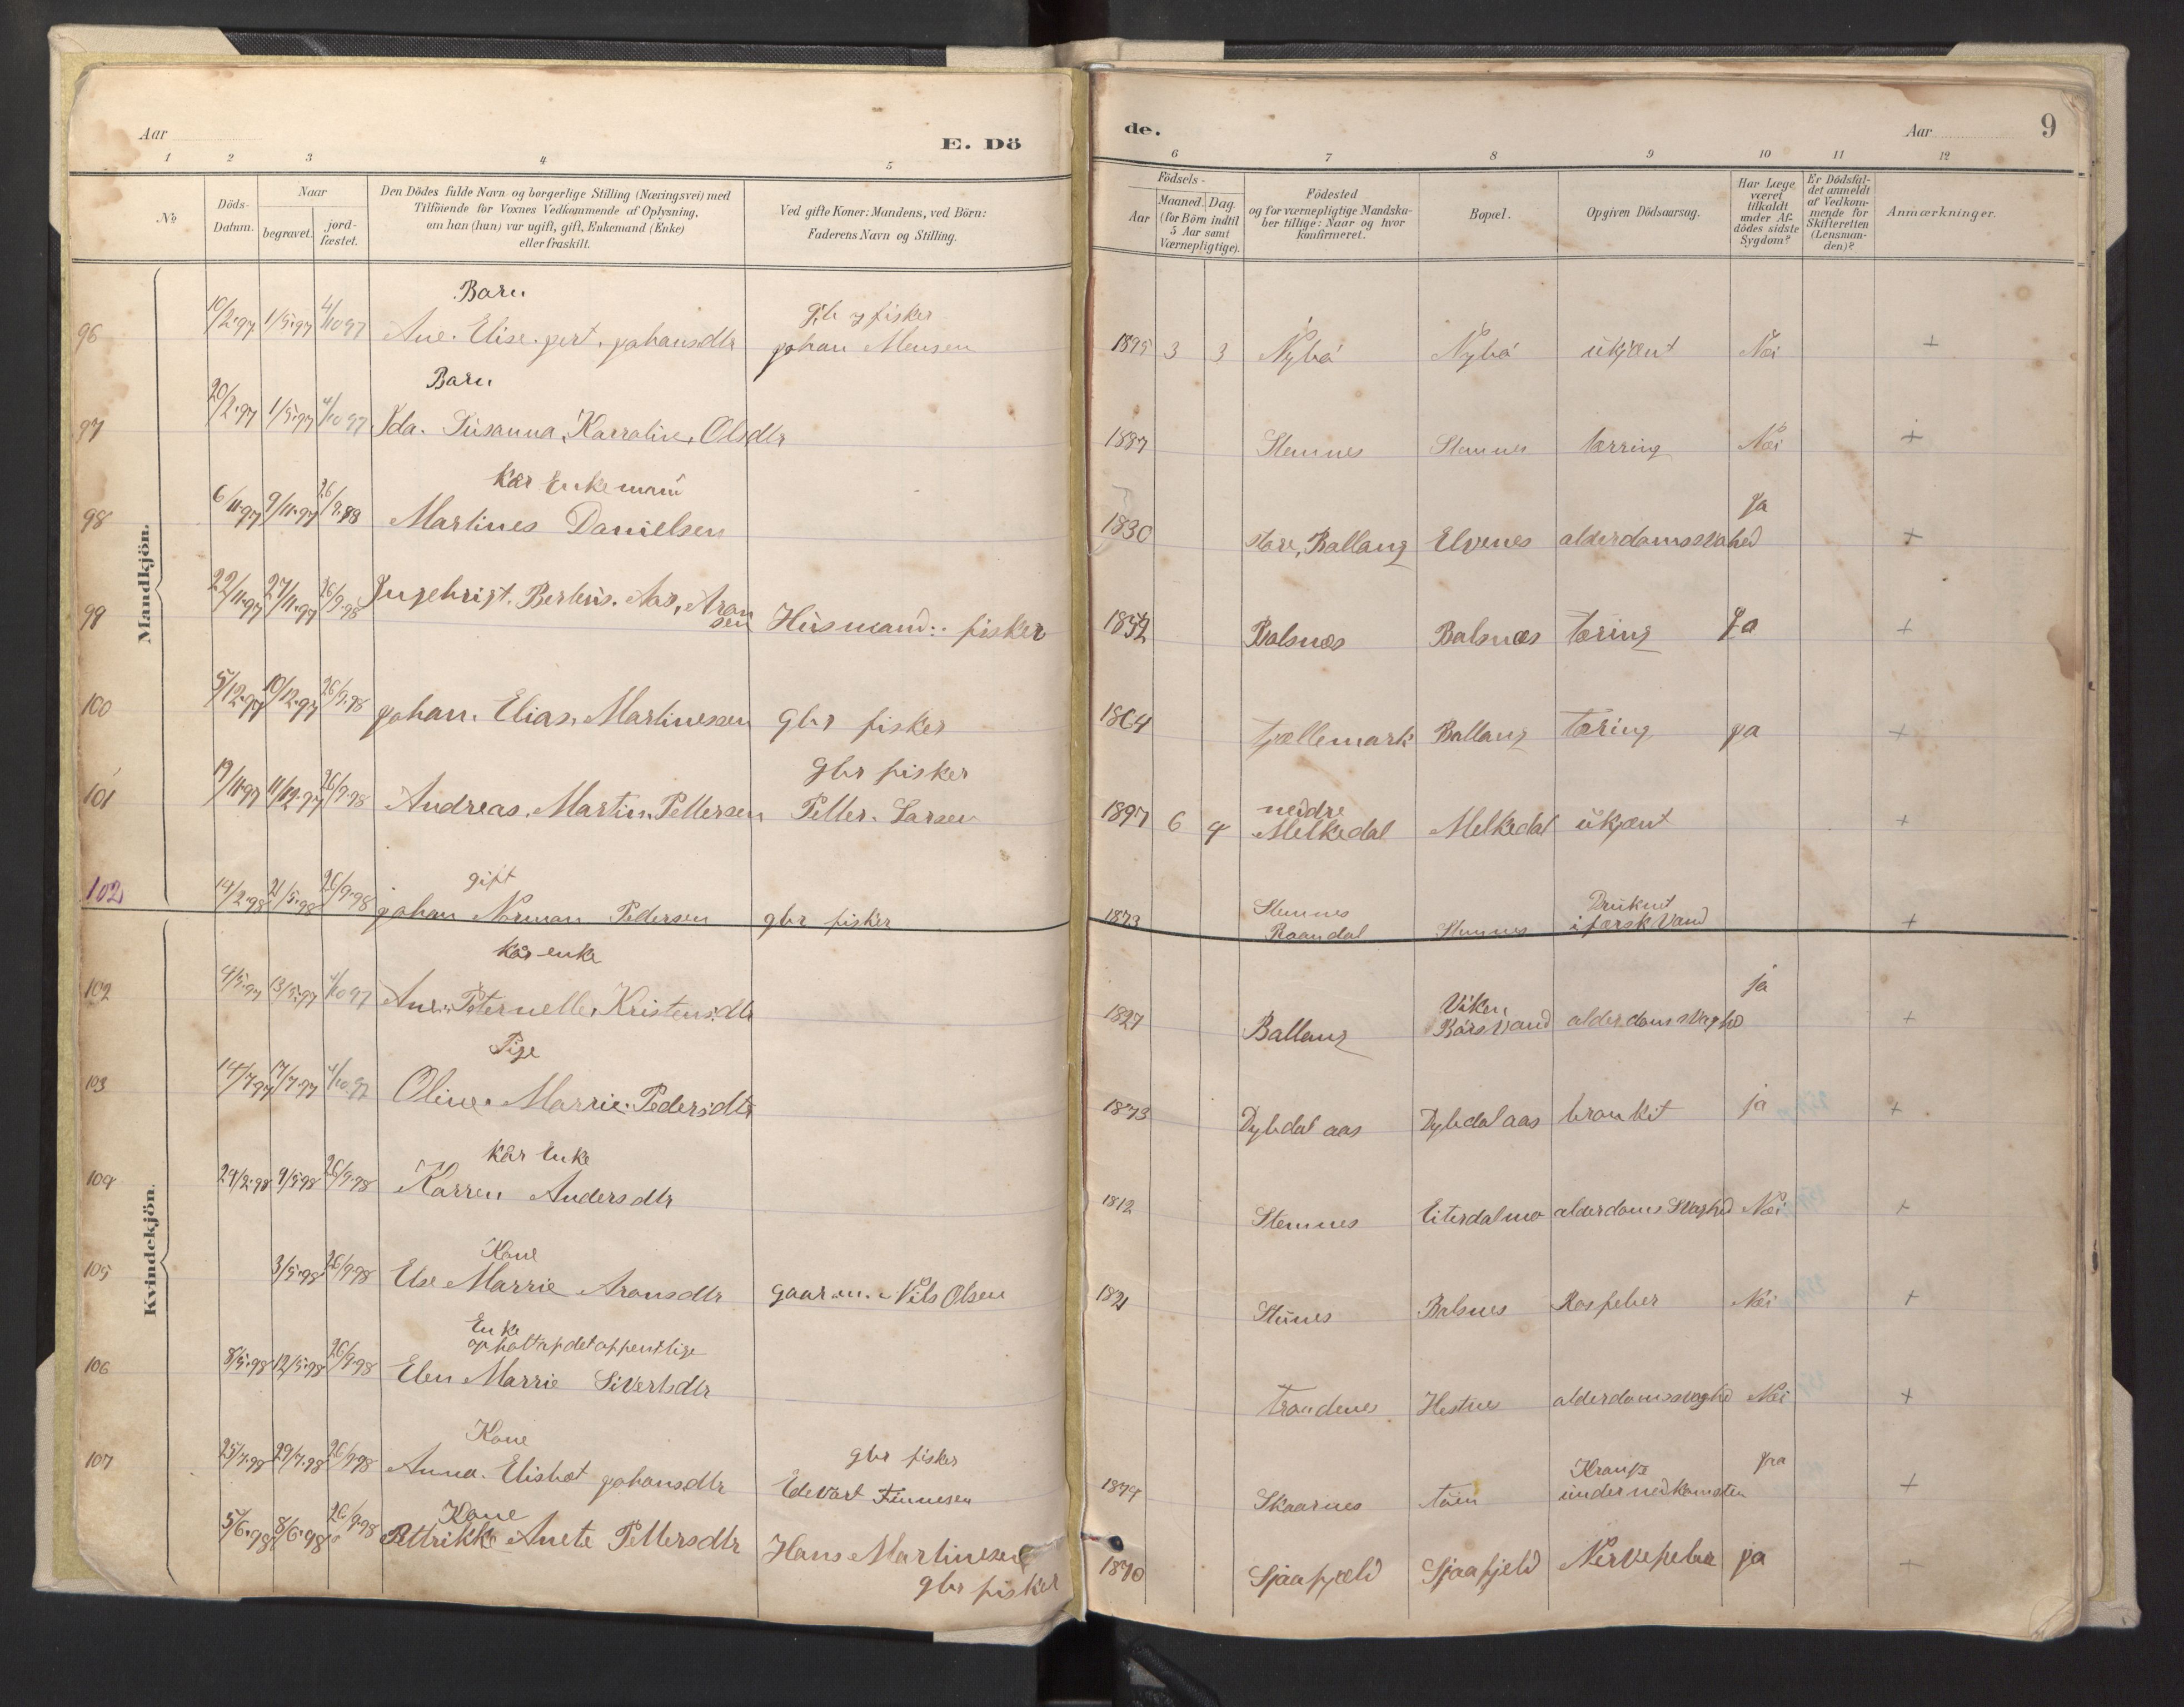 Aar
E. Dö
1 2 3 4 5
№
Döds-
Datum.
Naar
begravet.
jord-
fæstet.
Den Dödes fulde Navn og borgerlige Stilling (Næringsvei) med
Tilföiende for Voxnes Vedkommende af Oplysning,
om han (hun) var ugift, gift, Enkemand (Enke)
eller fraskilt.
Ved gifte Koner: Mandens, ved Börn:
Faderens Navn og Stilling.
Mandkjön.
Barn
gb og fisker
96 10/2.97 1/5.97 4/10 97 Ane. Elise. gert. johansdtr johan Mensen
Barn
97 20/2.97 1/5.97 4/10 97 Ida. Susanna, Karraline, Olsdtr
Kår Enkemann
98 6/11.97 9/11.97 26/9.98 Martines Danielsen
99 22/11.97 27/11.97 26/9.98 Ingebrigt. Berteus. Aas, Aron
sen Husmand: fisker
100 5/12.97 10/12.97 26/9.98 johan. Elias, Martinessen gbr fisker
gbr fisker
101 19/11.97 11/12.97 26/9.98 Andreas. Martin. Pettersen Petter. Larsen
gift
102 14/2.98 21/5.98 26/9.98 johan Norman Pedersen gbr fisker
Kvindekjön.
Kår enke
102 4/5.97 13/5.97 4/10 97 Ane. Peternelle, Kristensdtr
Pige
103 14/7.97 17/7.97 4/10.97 Oline. Marrie. Pedersdtr
Kår Enke
104 24/2.98 9/5.98 26/9.98 Karren Andersdtr
Kone
105 3/5.98 26/9.98 Else Marrie Aronsdtr gaarm. Nils Olsen
Enke
opholt af det offentlige
106 8/5.98 12/5.98 26/9.98 Elen Marrie Sivertsdtr
Kone
gbr fisker
107 25/7.98 29/7.98 26/9.98 Anna. Elisbet johansdtr Edevart Finnesen
Kone
5/6.98 8/6.98 26/9.98 Pettrikke Anete Pettersdtr Hans Martinesen
gbr fisker
de.
Aar
9
6 7 8 9 10 11 12
Födsels-
Aar
Maaned. Dag.
(for Börn indtil
5 Aar samt
Værnepligtige).
Födested
og for værnepligtige Mandska-
ber tillige: Naar og hvor
konfirmeret.
Bopæl.
Opgiven Dödsaarsag.
Har Læge
været
tilkaldt
under Af-
dödes sidste
Sygdom?
Er Dödsfal-
det anmeldt
af Vedkom-
mende for
Skifteretten
(Lensman-
den)?
Anmærkninger.
1895 3 3 Nybö Nybö ukjent Nei +
1897 Stemnes Stemnes tærring Nei +
ja
1830 store, Ballang Elvenes alderdomssvahed +
1852 Balsnes Balsnes tæring Ja +
1864 tjellemark Ballang Tæring ja +
neidre
1897 6 4 Melkedal Melkedal ukjent +
Stemnes
Druknet
1873 Raandal Stemnes i færsk Vand +
ja
Viken,
1827 Ballang Börsvand alderdomssvaghed +
1873 Dybdal aas Dybdal aas bronkit ja +
1812 Stemnes Eiterdalmo alderdoms Svaghed Nei +
1821 Stunes Balsnes Rosfeber Nei +
Trondenes Hestnes alderdomssvaghed Nei +
Krampe
jaa
1874 Skaarnes Tuin under nedkomsten +
1870 Sjaafjeld Sjaafjeld Nervefeber ja +